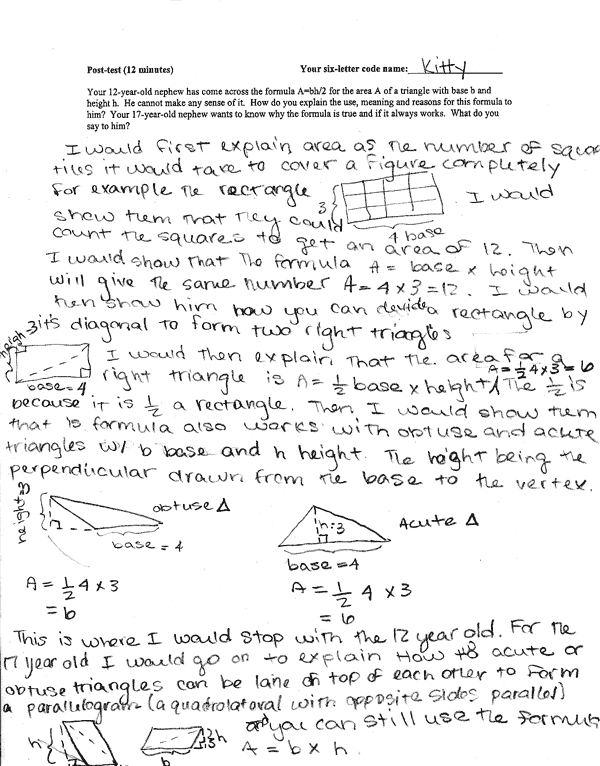 Post-test (12 minutes) Your six-letter code name: Kitty
Your 12-year-old nephew has come across the formula A=bh/2 for the area A of a triangle with base b and
height h. He cannot make any sense of it. How do you explain the use, meaning and reasons for this formula to
him? Your 17-year-old nephew wants to know why the formula is true and if it always works. What do you
say to him?
I would first explain area as the number of square
tiles it would take to cover a figure completely
for example the rectangle 3 . I would
show them that they could 4 base
count the squares to get an area of 12. Then
I would show that the formula A = base x height
will give the same number A = 4 x 3 = 12. I would
then show him how you can devide a rectangle by
it's diagonal to form two right triangles
height=3
base = 4
I would then explain that the area for a
right triangle is A = 1/2 base x height A = 1/2 4 x 3 = 6 The 1/2 is
because it is 1/2 a rectangle. Then I would show them
that is formula also works with obtuse and acute
triangles w/ b base and h height. The height being the
perpendiicular drawn from the base to the vertex.
height=3 obtuse Δ h=3 Acute Δ
base = 4 base = 4
A = 1/2 4 x 3 A = 1/2 4 x 3
= 6 = 6
This is where I would stop with the 12 year old. For the
17 year old I would go on to explain How acute or
obtuse triangles can be lane on top of each other to form
a parallelogram (a quadrolatoral with opposite sides parallel)
and you can still use the formula
h h b
A = b x h.